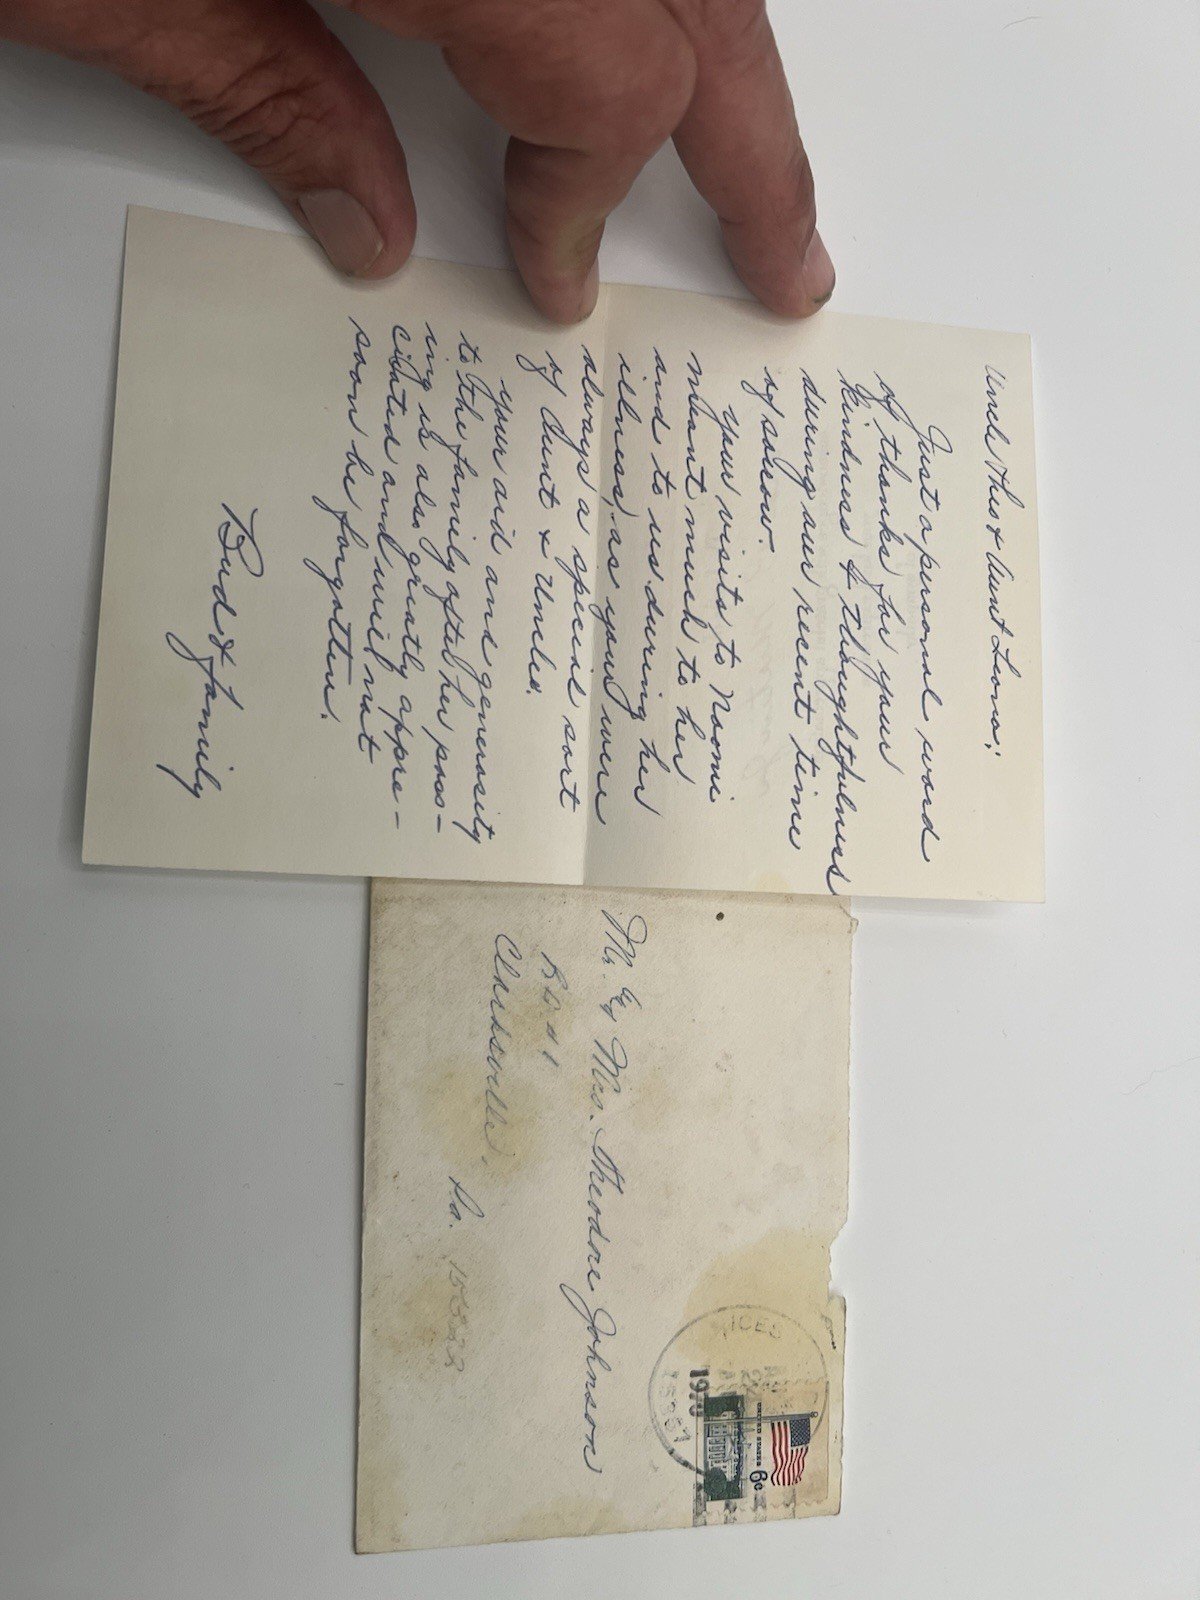 Uncle Theo & Aunt Leona;
Just a personal word
of thanks for your
kindness & thoughtfulness
during our recent time
of sorrow.
Your visits to Naomi
meant much to her
and to us during her
illness, as you were
always a special sort
of Aunt & Uncle.
Your aid and generosity
to the family after her pass-
ing is also greatly appre-
ciated and will not
soon be forgotten.
Bud & family
Mr. & Mrs. Theodore Johnson
R.D. #1
Clarksville, Pa. 15322
ICES
1970
15357
UNITED STATES 6c